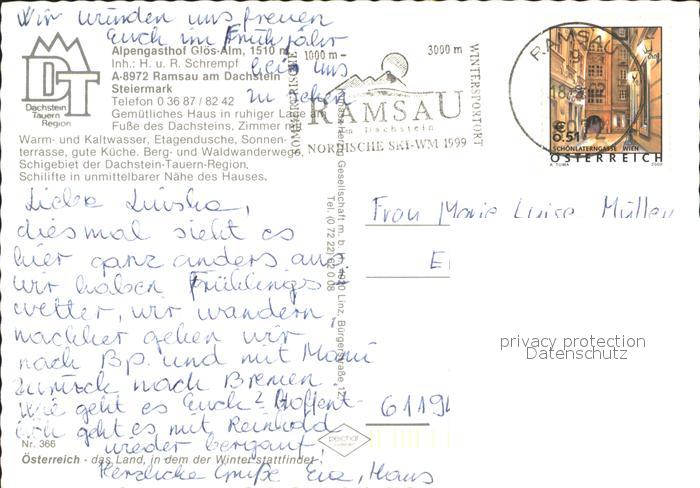 Wir würden uns freuen
Euch im Frühjahr
bei uns
zu sehen
Alpengasthof Glös-Alm, 1510 m
Inh.: H. u. R. Schrempf
A-8972 Ramsau am Dachstein
Steiermark
Telefon 0 36 87 / 82 42
Gemütliches Haus in ruhiger Lage am
Fuße des Dachsteins, Zimmer mit
Warm- und Kaltwasser, Etagendusche, Sonnen-
terrasse, gute Küche. Berg- und Waldwanderwege,
Schigebiet der Dachstein-Tauern-Region,
Schilifte in unmittelbarer Nähe des Hauses.
DT
Dachstein
Tauern
Region
1000 m -
3000 m
RAMSAU
am Dachstein
NORDISCHE SKI-WM 1999
WINTERSPORTORT
RAMSAU
€ 0,51
SCHÖNLATERNGASSE WIEN
ÖSTERREICH
A. TUMA
Liebe Luiska,
diesmal sieht es
hier ganz anders aus,
wir haben Frühlings-
wetter, wir wandern,
nachher gehen wir
nach Bp. und mit Mami
zurück nach Bremen.
Wie geht es Euch? Hoffent-
lich geht es mit Reinhold
wieder bergauf,
Herzliche Grüße Eva, Hans
Frau Marie Luise Müller
E
6119
Gesellschaft m. b. H., 4020 Linz, Bürgerstraße 12,
Tel. (0 72 22)
privacy protection
Datenschutz
Nr. 366
Österreich - das Land, in dem der Winter stattfindet